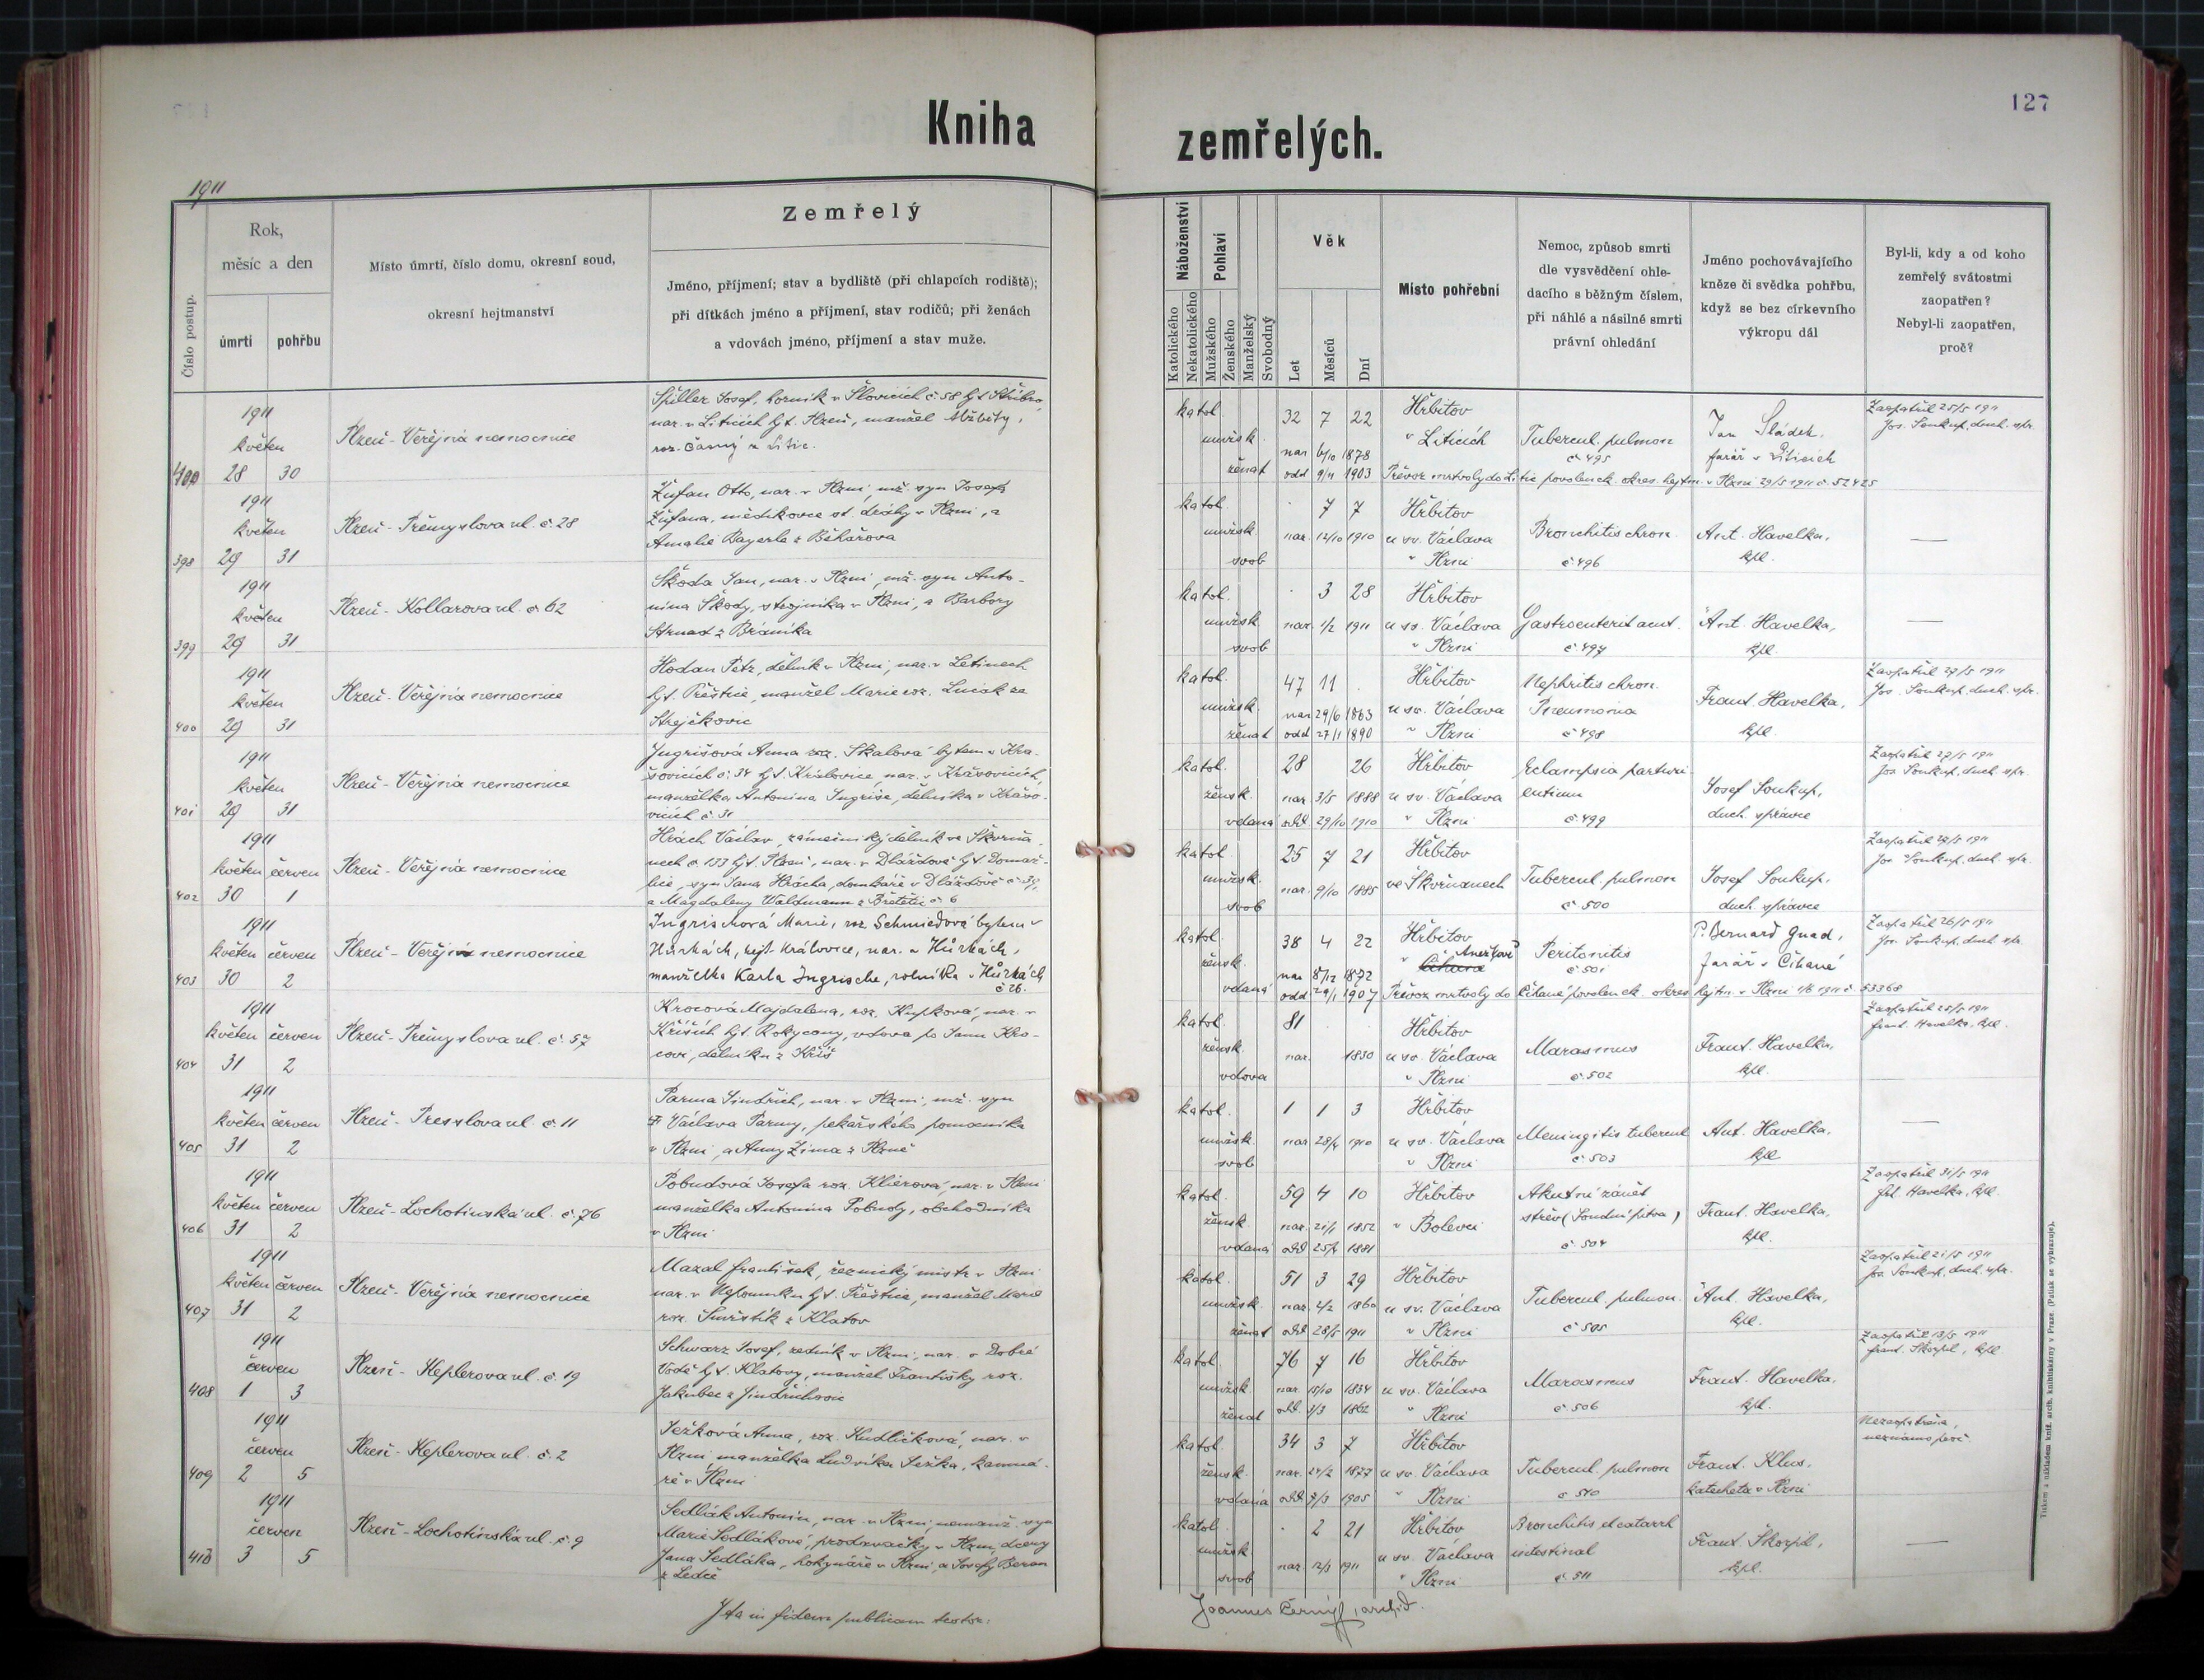 127
Kniha zemřelých.
1911
Číslo postup.
Rok,
měsíc a den
úmrtí
pohřbu
Místo úmrtí, číslo domu, okresní soud,
okresní hejtmanství
Zemřelý
Jméno, příjmení; stav a bydliště (při chlapcích rodiště);
při dítkách jméno a příjmení, stav rodičů; při ženách
a vdovách jméno, příjmení a stav muže.
Náboženství
Katolického
Nekatolického
Pohlaví
Mužského
Ženského
Manželský
Svobodný
Věk
Let
Měsíců
Dní
Místo pohřební
Nemoc, způsob smrti
dle vysvědčení ohle-
dacího s běžným číslem,
při náhlé a násilné smrti
právní ohledání
Jméno pochovávajícího
kněze či svědka pohřbu,
když se bez církevního
výkropu dál
Byl-li, kdy a od koho
zemřelý svátostmi
zaopatřen?
Nebyl-li zaopatřen,
proč?
1911
květen
28 30
Plzeň - Veřejná nemocnice
Spiller Josef, horník v Šlovicích č. 58 hjt. Stříbro,
nar. v Liticích hjt. Plzeň, manžel Alžběty,
roz. Černý z Litic.
katol. 32 7 22
mužsk.
nar. 6/10 1878
ženat odd. 9/11 1903
Hřbitov
v Liticích
Tubercul. pulmon
č. 495
Jan Sládek,
farář v Liticích
Zaopatřil 25/5 1911
Jos. Soukup, duch. spr.
Převoz mrtvoly do Litic povolen c.k. okres. hejtm. v Plzni 29/5 1911 č. 52425
398
1911
květen
29 31
Plzeň - Přemyslova ul. č. 28
Žufan Otto, nar. v Plzni, mž. syn Josefa
Žufana, mědikovce st. dráhy v Plzni, a
Amalie Bayerle z Běhařova
katol. . 7 7
mužsk. nar. 12/10 1910
svob
Hřbitov
u sv. Václava
v Plzni
Bronchitis chron.
č. 496
Ant. Havelka,
kpl.
—
399
1911
květen
29 31
Plzeň - Kollarova ul. č. 62
Škoda Jan, nar. v Plzni, mž. syn Anto-
nína Škody, strojníka v Plzni, a Barbory
Strnad z Bráníka
katol. . 3 28
mužsk. nar. 1/2 1911
svob
Hřbitov
u sv. Václava
v Plzni
Gastroenterit acut.
č. 497
Ant. Havelka,
kpl.
—
400
1911
květen
29 31
Plzeň - Veřejná nemocnice
Hodan Petr, dělník v Plzni, nar. v Letinech
hjt. Přeštice, manžel Marie roz. Lniak ze
Strejčkovic
katol. 47 11 .
mužsk. nar. 29/6 1863
ženat odd. 27/1 1890
Hřbitov
u sv. Václava
v Plzni
Nephritis chron.
Pneumonia
č. 498
Frant. Havelka,
kpl.
Zaopatřil 27/5 1911
Jos. Soukup, duch. spr.
401
1911
květen
29 31
Plzeň - Veřejná nemocnice
Ingrišová Anna roz. Skalová bytem v Kra-
šovicích č. 34 hjt. Kralovice, nar. v Krašovicích,
manželka Antonína Ingriše, dělníka v Krašo-
vicích č. 31
katol. 28 26
žensk. nar. 3/5 1888
vdaná odd. 29/10 1910
Hřbitov
u sv. Václava
v Plzni
Eclampsia parturi-
entium
č. 499
Josef Soukup,
duch. správce
Zaopatřil 27/5 1911
Jos. Soukup, duch. spr.
402
1911
květen červen
30 1
Plzeň - Veřejná nemocnice
Hrách Václav, zámečnický dělník ve Škvrňa-
nech č. 133 hjt. Plzeň, nar. v Dlažďově hjt. Domaž-
lice, syn Jana Hrácha, domkáře v Dlažďově č. 39,
a Magdaleny Waldmann z Břetětic č. 6
katol. 25 7 21
mužsk. nar. 9/10 1885
svob
Hřbitov
ve Škvrňanech
Tubercul. pulmon
č. 500
Josef Soukup,
duch. správce
Zaopatřil 29/5 1911
Jos. Soukup, duch. spr.
403
1911
květen červen
30 2
Plzeň - Veřejná nemocnice
Ingrischová Marie, roz. Schmiedová bytem v
Hůrkách, hejt. Kralovice, nar. v Hůrkách,
manželka Karla Ingrische, rolníka v Hůrkách
č. 26.
katol. 38 4 22
žensk. nar. 8/12 1872
vdaná odd. 29/1 1907
Hřbitov
P. Bernard Gnad,
farář v Číhané
Peritonitis
č. 501
Zaopatřil 26/5 1911
Jos. Soukup, duch. spr.
Převoz mrtvoly do Číhané povolen c.k. okres. hejtm. v Plzni 1/6 1911 č. 53368
404
1911
květen červen
31 2
Plzeň - Přemyslova ul. č. 57
Krocová Majdalena, roz. Kupková, nar. v
Kříších hjt. Rokycany, vdova po Janu Kro-
covi, dělníku z Kříš
katol. 81 .
žensk. nar. 1830
vdova
Hřbitov
u sv. Václava
v Plzni
Marasmus
č. 502
Frant. Havelka,
kpl.
Zaopatřil 28/5 1911
Frant. Havelka, kpl.
405
1911
květen červen
31 2
Plzeň - Presslova ul. č. 11
Parma Jindřich, nar. v Plzni, mž. syn
Václava Parmy, pekařského pomocníka
v Plzni, a Anny Zima z Plzně
katol. 1 1 3
mužsk. nar. 28/4 1910
svob
Hřbitov
u sv. Václava
v Plzni
Meningitis tubercul
č. 503
Ant. Havelka,
kpl.
—
406
1911
květen červen
31 2
Plzeň - Lochotínská ul. č. 76
Pobudová Josefa roz. Klierová, nar. v Plzni
manželka Antonína Pobudy, obchodníka
v Plzni
katol. 59 4 10
žensk. nar. 21/1 1852
vdaná odd. 25/4 1881
Hřbitov
v Bolevci
Akutní zánět
střev (Soudní pitva)
č. 504
Frant. Havelka,
kpl.
Zaopatřil 31/5 1911
Havelka, kpl.
407
1911
květen červen
31 2
Plzeň - Veřejná nemocnice
Mazal František, řeznický mistr v Plzni
nar. v Nepomuku hjt. Přeštice, manžel Marie
roz. Smrštík z Klatov
katol. 51 3 29
mužsk. nar. 2/2 1860
ženat odd. 28/5 1911
Hřbitov
u sv. Václava
v Plzni
Tubercul. pulmon.
č. 505
Ant. Havelka,
kpl.
Zaopatřil 21/5 1911
Jos. Soukup, duch. spr.
408
1911
červen
1 3
Plzeň - Keplerova ul. č. 19
Schwarz Josef, zedník v Plzni, nar. v Dobré
Vodě hjt. Klatovy, manžel Františky roz.
Jakubec z Jindřichovic
katol. 76 7 16
mužsk. nar. 15/10 1834
ženat odd. 3/3 1862
Hřbitov
u sv. Václava
v Plzni
Marasmus
č. 506
Frant. Havelka,
kpl.
Zaopatřil 13/5 1911
Frant. Škorpil, kpl.
409
1911
červen
2 5
Plzeň - Keplerova ul. č. 2
Ježková Anna, roz. Kudličková, nar. v
Plzni, manželka Ludvíka Ježka, kamná-
ře v Plzni
katol. 34 3 7
žensk. nar. 24/2 1877
vdaná odd. 7/3 1905
Hřbitov
u sv. Václava
v Plzni
Tubercul. pulmon
č. 510
Frant. Klus,
katecheta v Plzni
Nezaopatřena,
neznámo proč.
410
1911
červen
3 5
Plzeň - Lochotínská ul. č. 9
Sedlák Antonín, nar. v Plzni, nemanž. syn
Marie Sedlákové, prodavačky v Plzni, dcery
Jana Sedláka, hokynáře v Plzni, a Josefy Beran
z Ledče
katol. . 2 21
mužsk. nar. 12/3 1911
svob
Hřbitov
u sv. Václava
v Plzni
Bronchitis et catarrh
intestinal
č. 511
Frant. Škorpil,
kpl.
—
Ita in fidem publicam testor:
Joannes Černý, archid.
Tiskem a nákladem kníž. arcib. knihtiskárny v Praze. (Patisk se vyhrazuje).